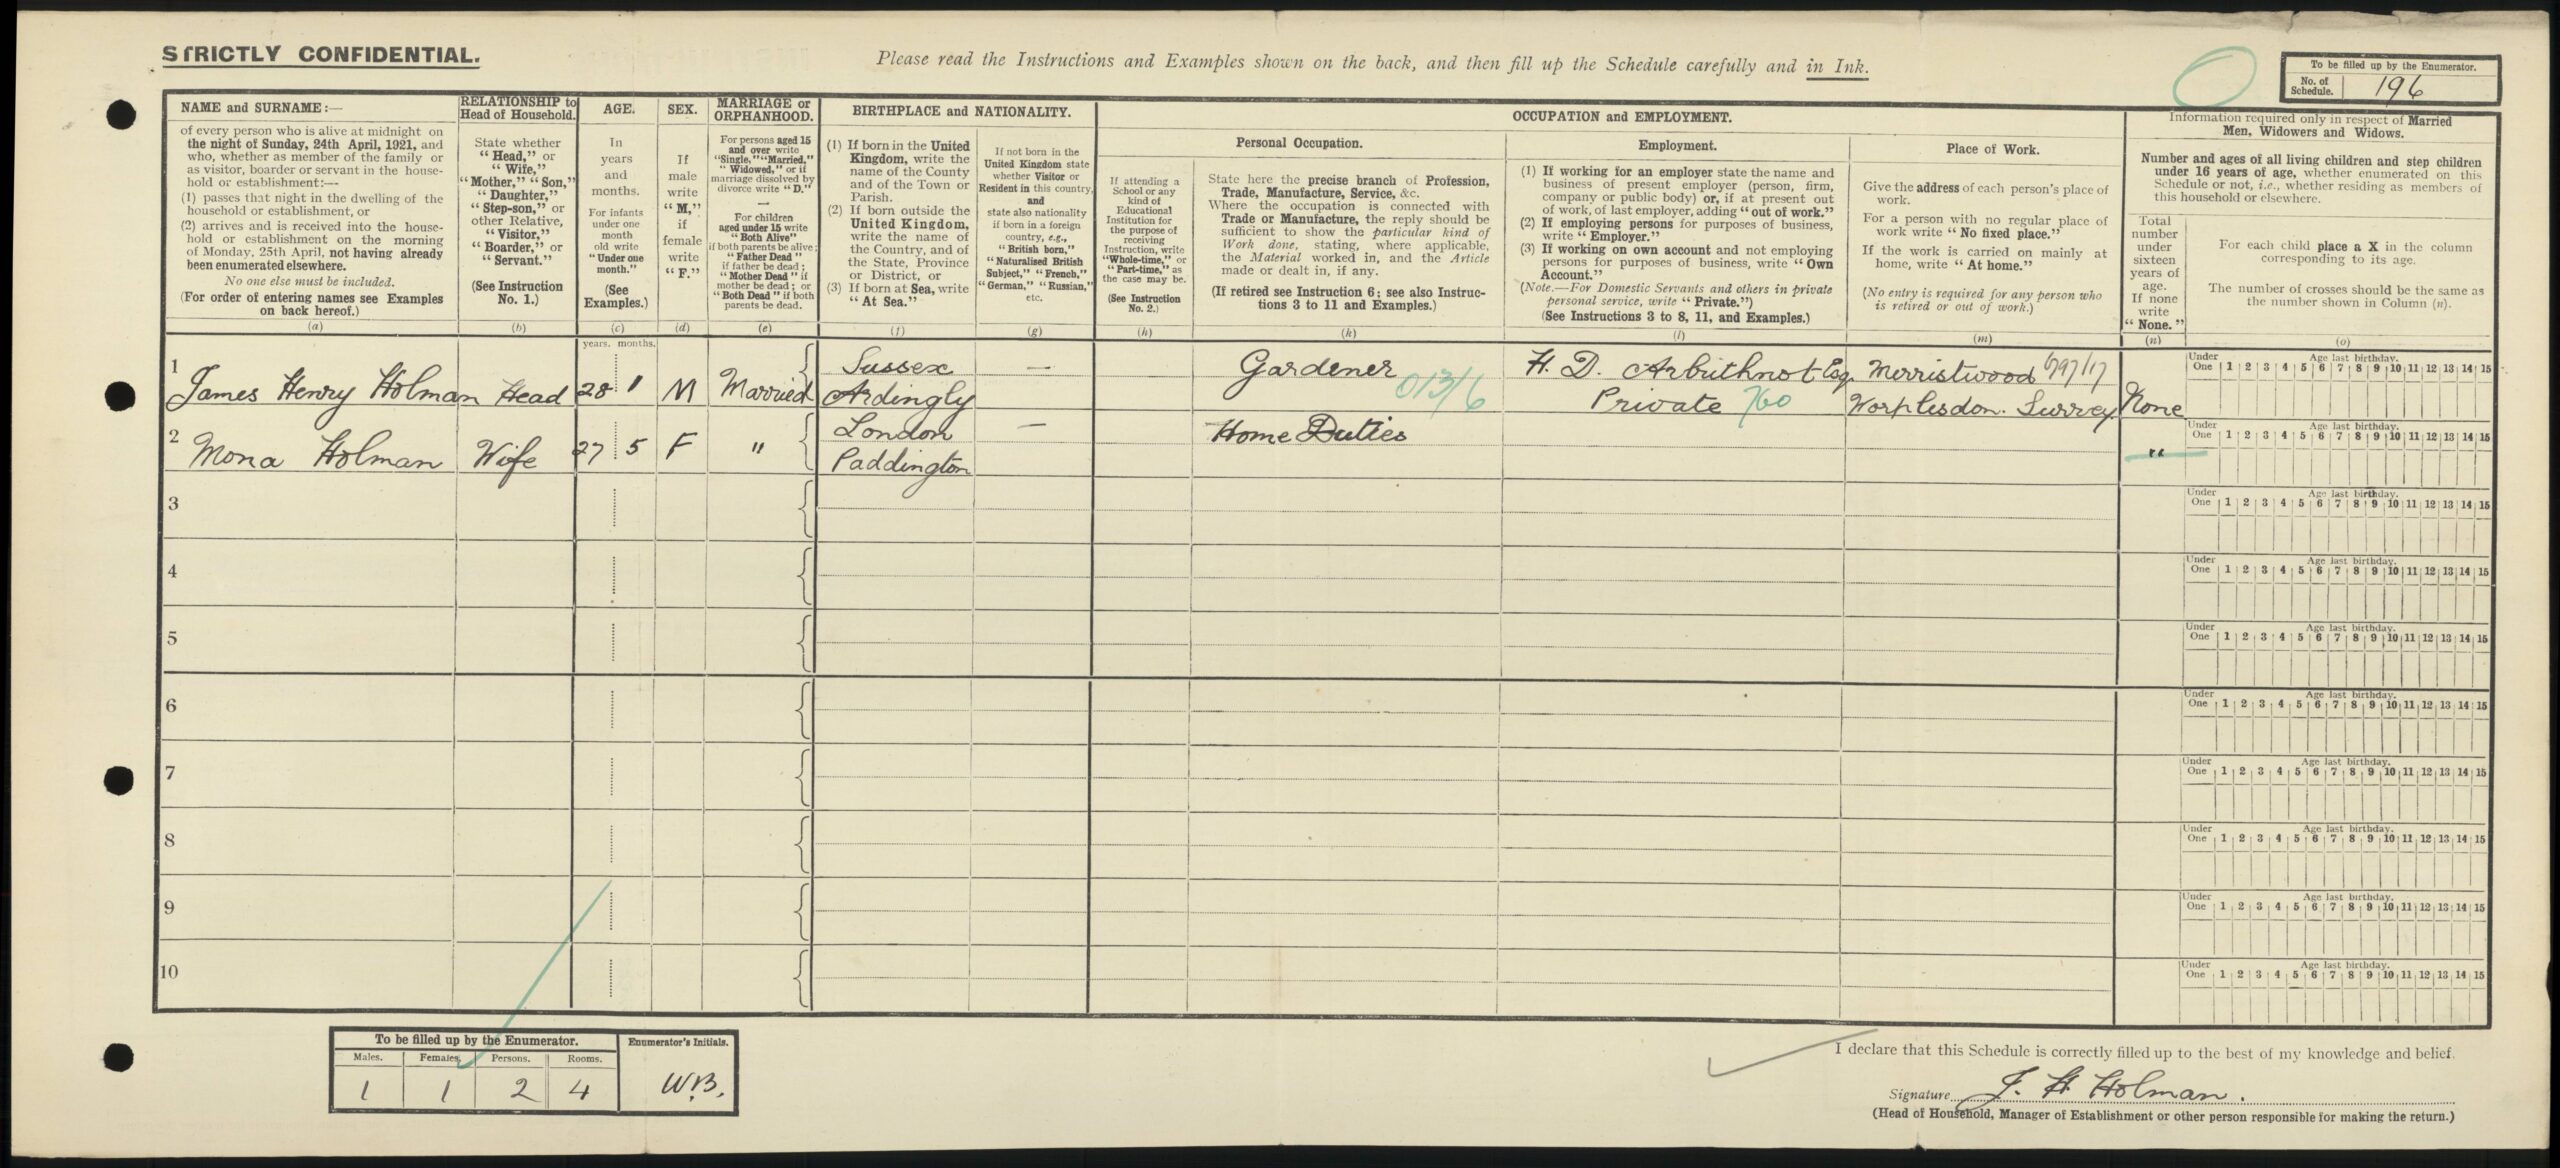 STRICTLY CONFIDENTIAL.
Please read the Instructions and Examples shown on the back, and then fill up the Schedule carefully and in Ink.
To be filled up by the Enumerator.
No. of Schedule. 196
NAME and SURNAME:—
of every person who is alive at midnight on
the night of Sunday, 24th April, 1921, and
who, whether as member of the family or
as visitor, boarder or servant in the house-
hold or establishment:—
(1) passes that night in the dwelling of the
household or establishment, or
(2) arrives and is received into the house-
hold or establishment on the morning
of Monday, 25th April, not having already
been enumerated elsewhere.
No one else must be included.
(For order of entering names see Examples
on back hereof.)
(a)
RELATIONSHIP to
Head of Household.
State whether
"Head," or
"Wife,"
"Mother," "Son,"
"Daughter,"
"Step-son," or
other Relative,
"Visitor,"
"Boarder," or
"Servant."
(See Instruction
No. 1.)
(b)
AGE.
In
years
and
months.
For infants
under one
month
old write
"Under one
month."
(See
Examples.)
(c)
SEX.
If
male
write
"M,"
if
female
write
"F."
(d)
MARRIAGE or
ORPHANHOOD.
For persons aged 15
and over write
"Single," "Married,"
"Widowed," or if
marriage dissolved by
divorce write "D."
—
For children
aged under 15 write
"Both Alive"
if both parents be alive;
"Father Dead"
if father be dead;
"Mother Dead" if
mother be dead; or
"Both Dead" if both
parents be dead.
(e)
BIRTHPLACE and NATIONALITY.
(1) If born in the United
Kingdom, write the
name of the County
and of the Town or
Parish.
(2) If born outside the
United Kingdom,
write the name of
the Country, and of
the State, Province
or District, or
(3) If born at Sea, write
"At Sea."
(f)
If not born in the
United Kingdom state
whether Visitor or
Resident in this country,
and
state also nationality
if born in a foreign
country, e.g.,
"British born,"
"Naturalised British
Subject," "French,"
"German," "Russian,"
etc.
(g)
OCCUPATION and EMPLOYMENT.
If attending a
School or any
kind of
Educational
Institution for
the purpose of
receiving
Instruction, write
"Whole-time," or
"Part-time," as
the case may be.
(See Instruction
No. 2.)
(h)
Personal Occupation.
State here the precise branch of Profession,
Trade, Manufacture, Service, &c.
Where the occupation is connected with
Trade or Manufacture, the reply should be
sufficient to show the particular kind of
Work done, stating, where applicable,
the Material worked in, and the Article
made or dealt in, if any.
(If retired see Instruction 6; see also Instruc-
tions 3 to 11 and Examples.)
(k)
Employment.
(1) If working for an employer state the name and
business of present employer (person, firm,
company or public body) or, if at present out
of work, of last employer, adding "out of work."
(2) If employing persons for purposes of business,
write "Employer."
(3) If working on own account and not employing
persons for purposes of business, write "Own
Account."
(Note.—For Domestic Servants and others in private
personal service, write "Private.")
(See Instructions 3 to 8, 11, and Examples.)
(l)
Place of Work.
Give the address of each person's place of
work.
For a person with no regular place of
work write "No fixed place."
If the work is carried on mainly at
home, write "At home."
(No entry is required for any person who
is retired or out of work.)
(m)
Information required only in respect of Married
Men, Widowers and Widows.
Number and ages of all living children and step children
under 16 years of age, whether enumerated on this
Schedule or not, i.e., whether residing as members of
this household or elsewhere.
Total
number
under
sixteen
years of
age.
If none
write
"None."
(n)
For each child place a X in the column
corresponding to its age.
The number of crosses should be the same as
the number shown in Column (n).
(o)
years. months.
1 James Henry Holman Head 28 1 M Married Sussex Ardingly — Gardener 013/6 H. D. Arbuthnot Esq. Private 760 Merristwood Worplesdon. Surrey. None
Under One Age last birthday. 1 2 3 4 5 6 7 8 9 10 11 12 13 14 15
2 Mona Holman Wife 27 5 F " London Paddington — Home Duties "
Under One Age last birthday. 1 2 3 4 5 6 7 8 9 10 11 12 13 14 15
3 Under One Age last birthday. 1 2 3 4 5 6 7 8 9 10 11 12 13 14 15
4 Under One Age last birthday. 1 2 3 4 5 6 7 8 9 10 11 12 13 14 15
5 Under One Age last birthday. 1 2 3 4 5 6 7 8 9 10 11 12 13 14 15
6 Under One Age last birthday. 1 2 3 4 5 6 7 8 9 10 11 12 13 14 15
7 Under One Age last birthday. 1 2 3 4 5 6 7 8 9 10 11 12 13 14 15
8 Under One Age last birthday. 1 2 3 4 5 6 7 8 9 10 11 12 13 14 15
9 Under One Age last birthday. 1 2 3 4 5 6 7 8 9 10 11 12 13 14 15
10 Under One Age last birthday. 1 2 3 4 5 6 7 8 9 10 11 12 13 14 15
To be filled up by the Enumerator.
Males. Females. Persons. Rooms.
1 1 2 4
Enumerator's Initials.
W.B.
I declare that this Schedule is correctly filled up to the best of my knowledge and belief.
Signature J. H. Holman.
(Head of Household, Manager of Establishment or other person responsible for making the return.)